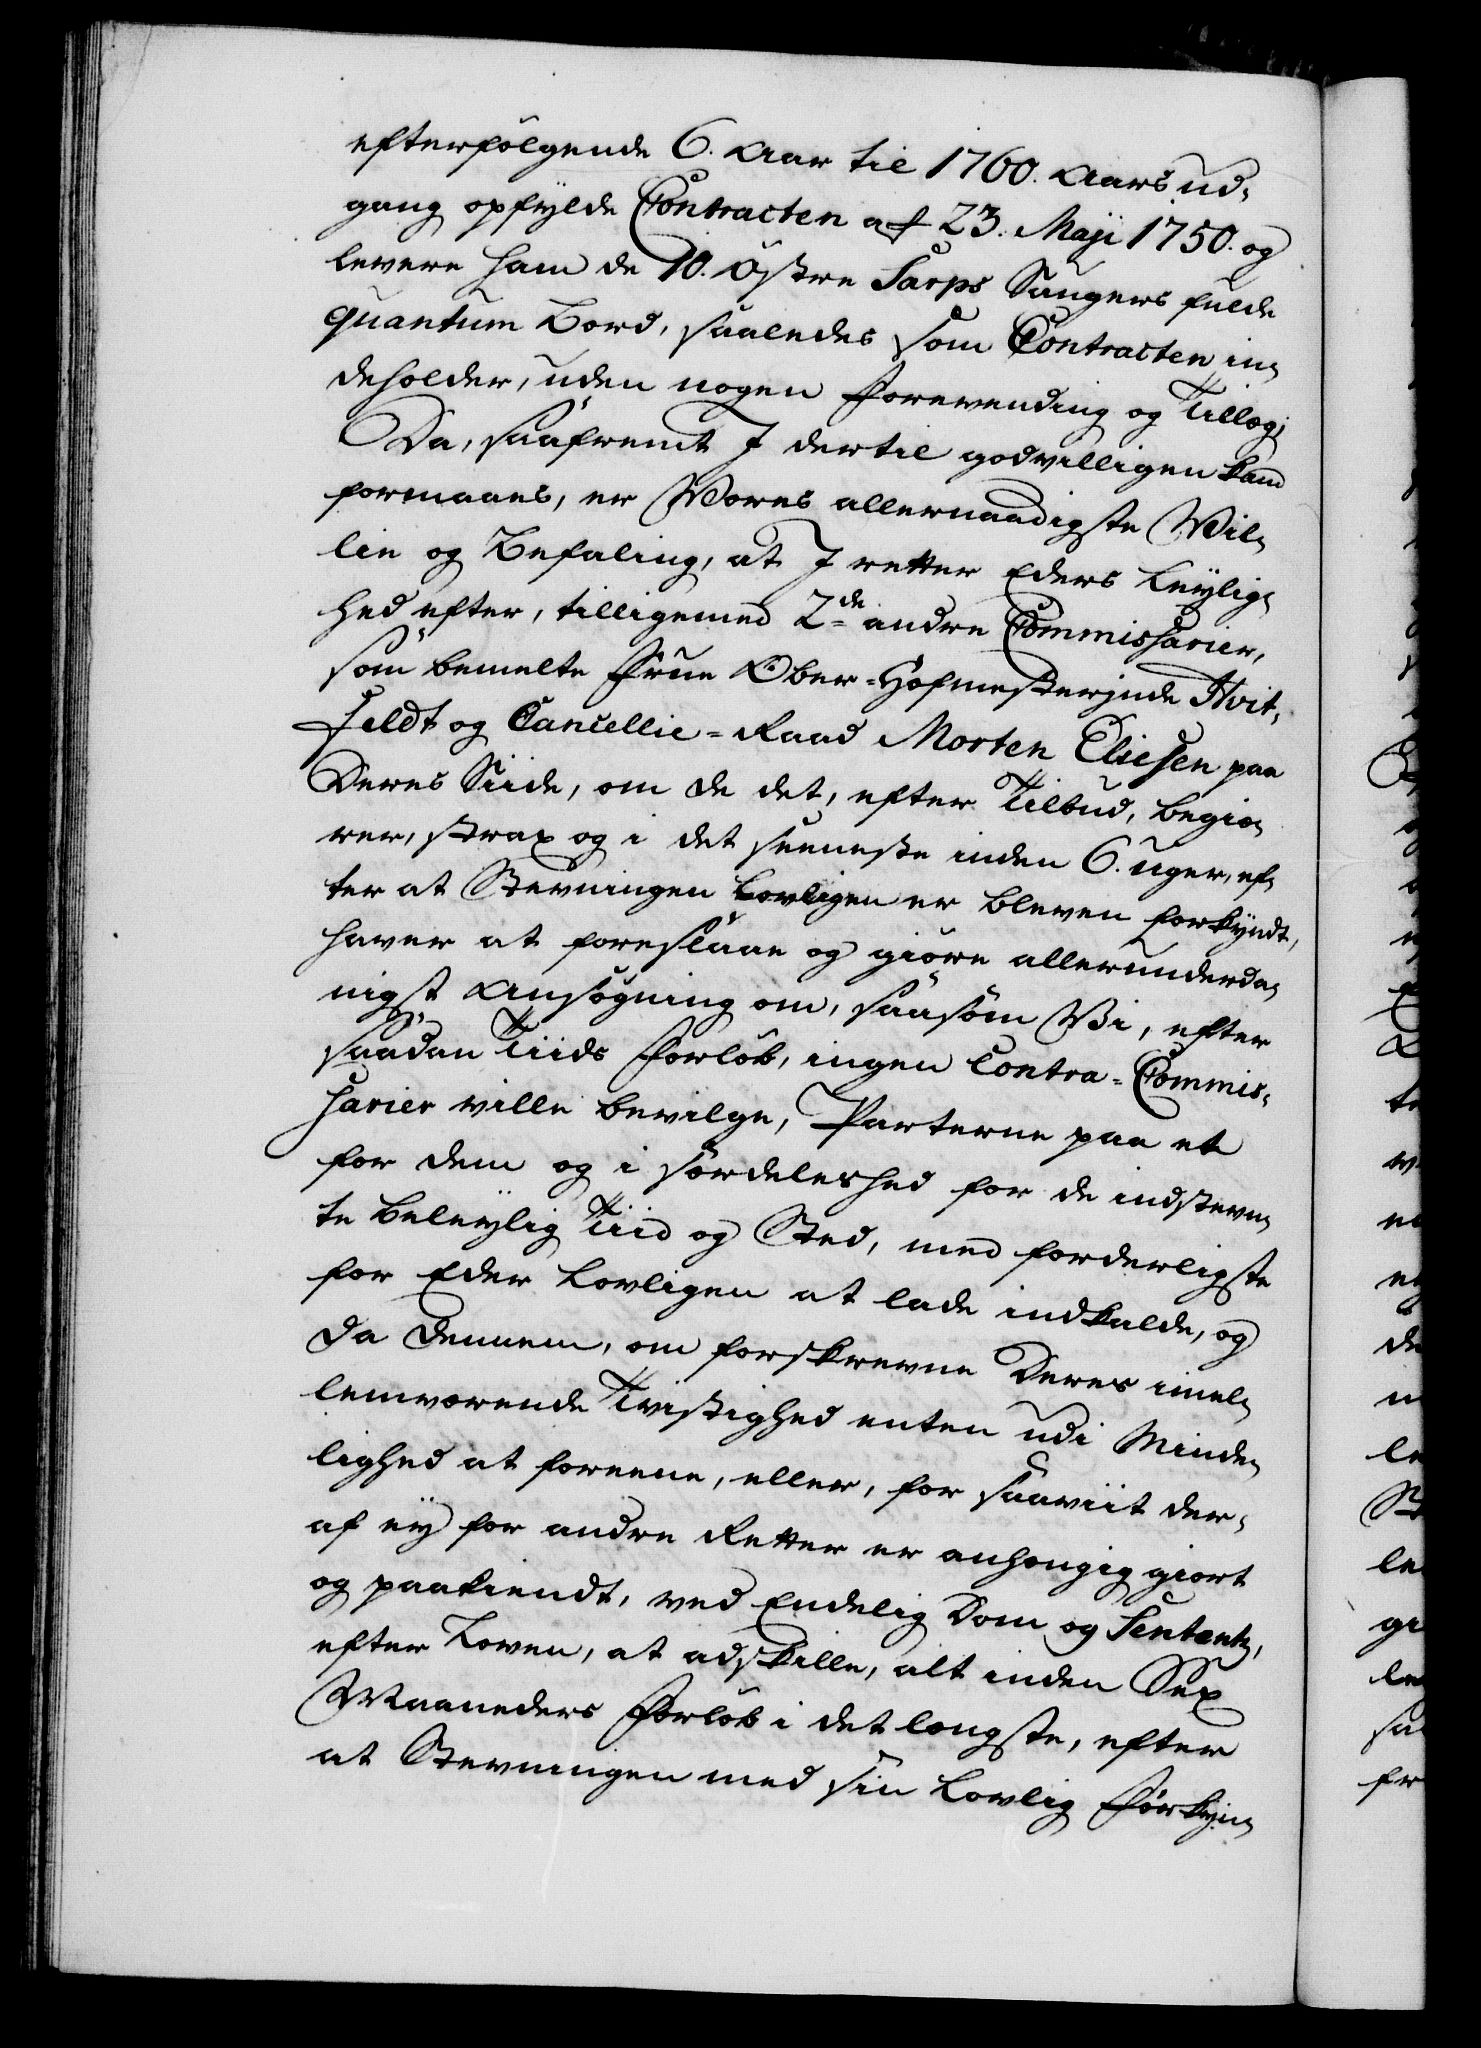 efterfølgende 6. Aar til 1760. Aars ud-
gang opfylde Contracten af 23. Maji 1750. og
levere ham de 10. Østre Sarps Saugers fulde
quantum Bord, saaledes som Contracten in-
deholder, uden nogen Forevending og Tillæg;
Da, saafremt I dertil godvilligen kand
formaaes, er Vores allernaadigste Vil-
lie og Befaling, at I retter Eders Leylig-
hed efter, tilligemed 2de andre Commissarier,
som bemelte Frue Ober-Hofmesterinde Hvit-
feldt og Cancellie-Raad Morten Eliesen paa
Deres Siide, om de det, efter Tilbud, begiæ-
rer, strax og i det seeneste inden 6. uger, ef-
ter at Stevningen Lovligen er bleven forkyndt,
haver at foreslaae og giøre allerunderda-
nigst Ansøgning om, saasom Vi, efter
saadan Tiids Forløb, ingen Contra-Commis-
sarier ville bevilge, Parterne paa et
for dem og i særdeleshed for de indstevn-
te beleylig Tiid og Sted, med forderligste
for Eder Lovligen at lade indkalde, og
da dennem, om forskrevne Deres imel-
lemværende Tvistighed enten udi Minde-
lighed at foreene, eller, for saaviit der-
af ey for andre Retter er anhængig giort
og paakiendt, ved Endelig Dom og Sententz,
efter Loven, at adskille, alt inden Sex
Maaneders Forløb i det længste, efter
at Stevningen med sin Lovlig Forkyn-